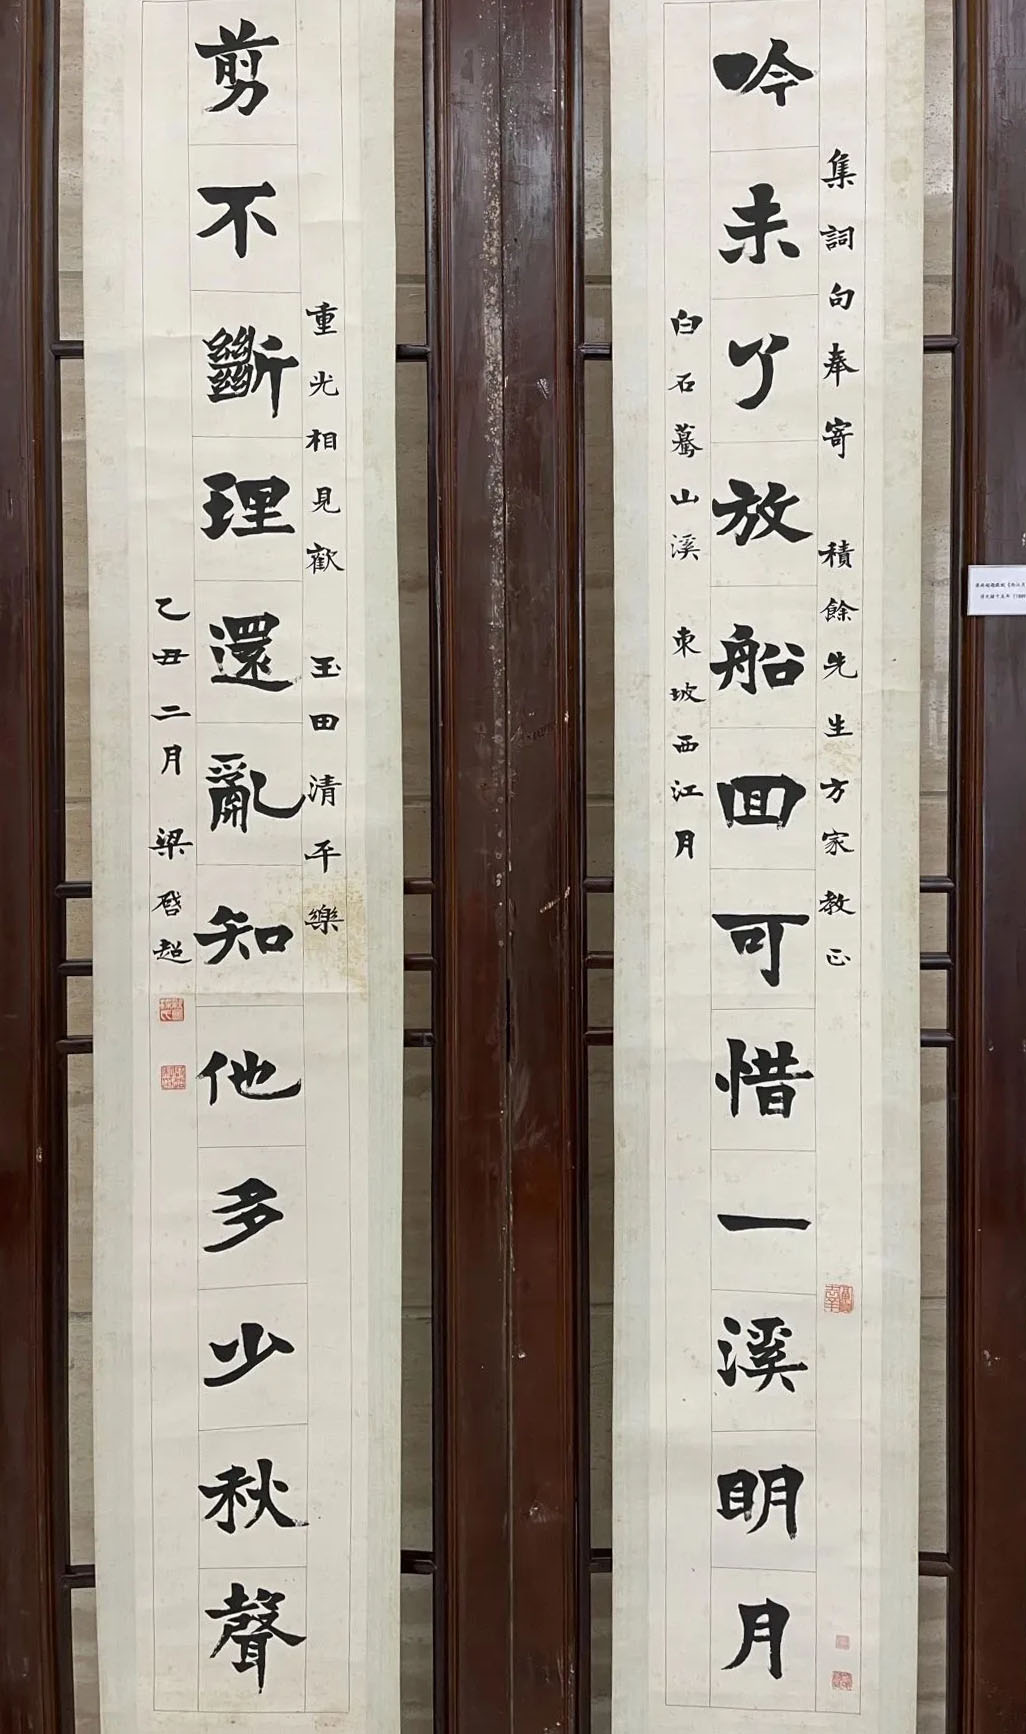 集詞句奉寄 積餘先生方家教正
吟未了放船回可惜一溪明月
白石蓦山溪 東坡西江月
重光相見歡 玉田清平樂
剪不斷理還亂知他多少秋聲
乙丑二月 梁啓超